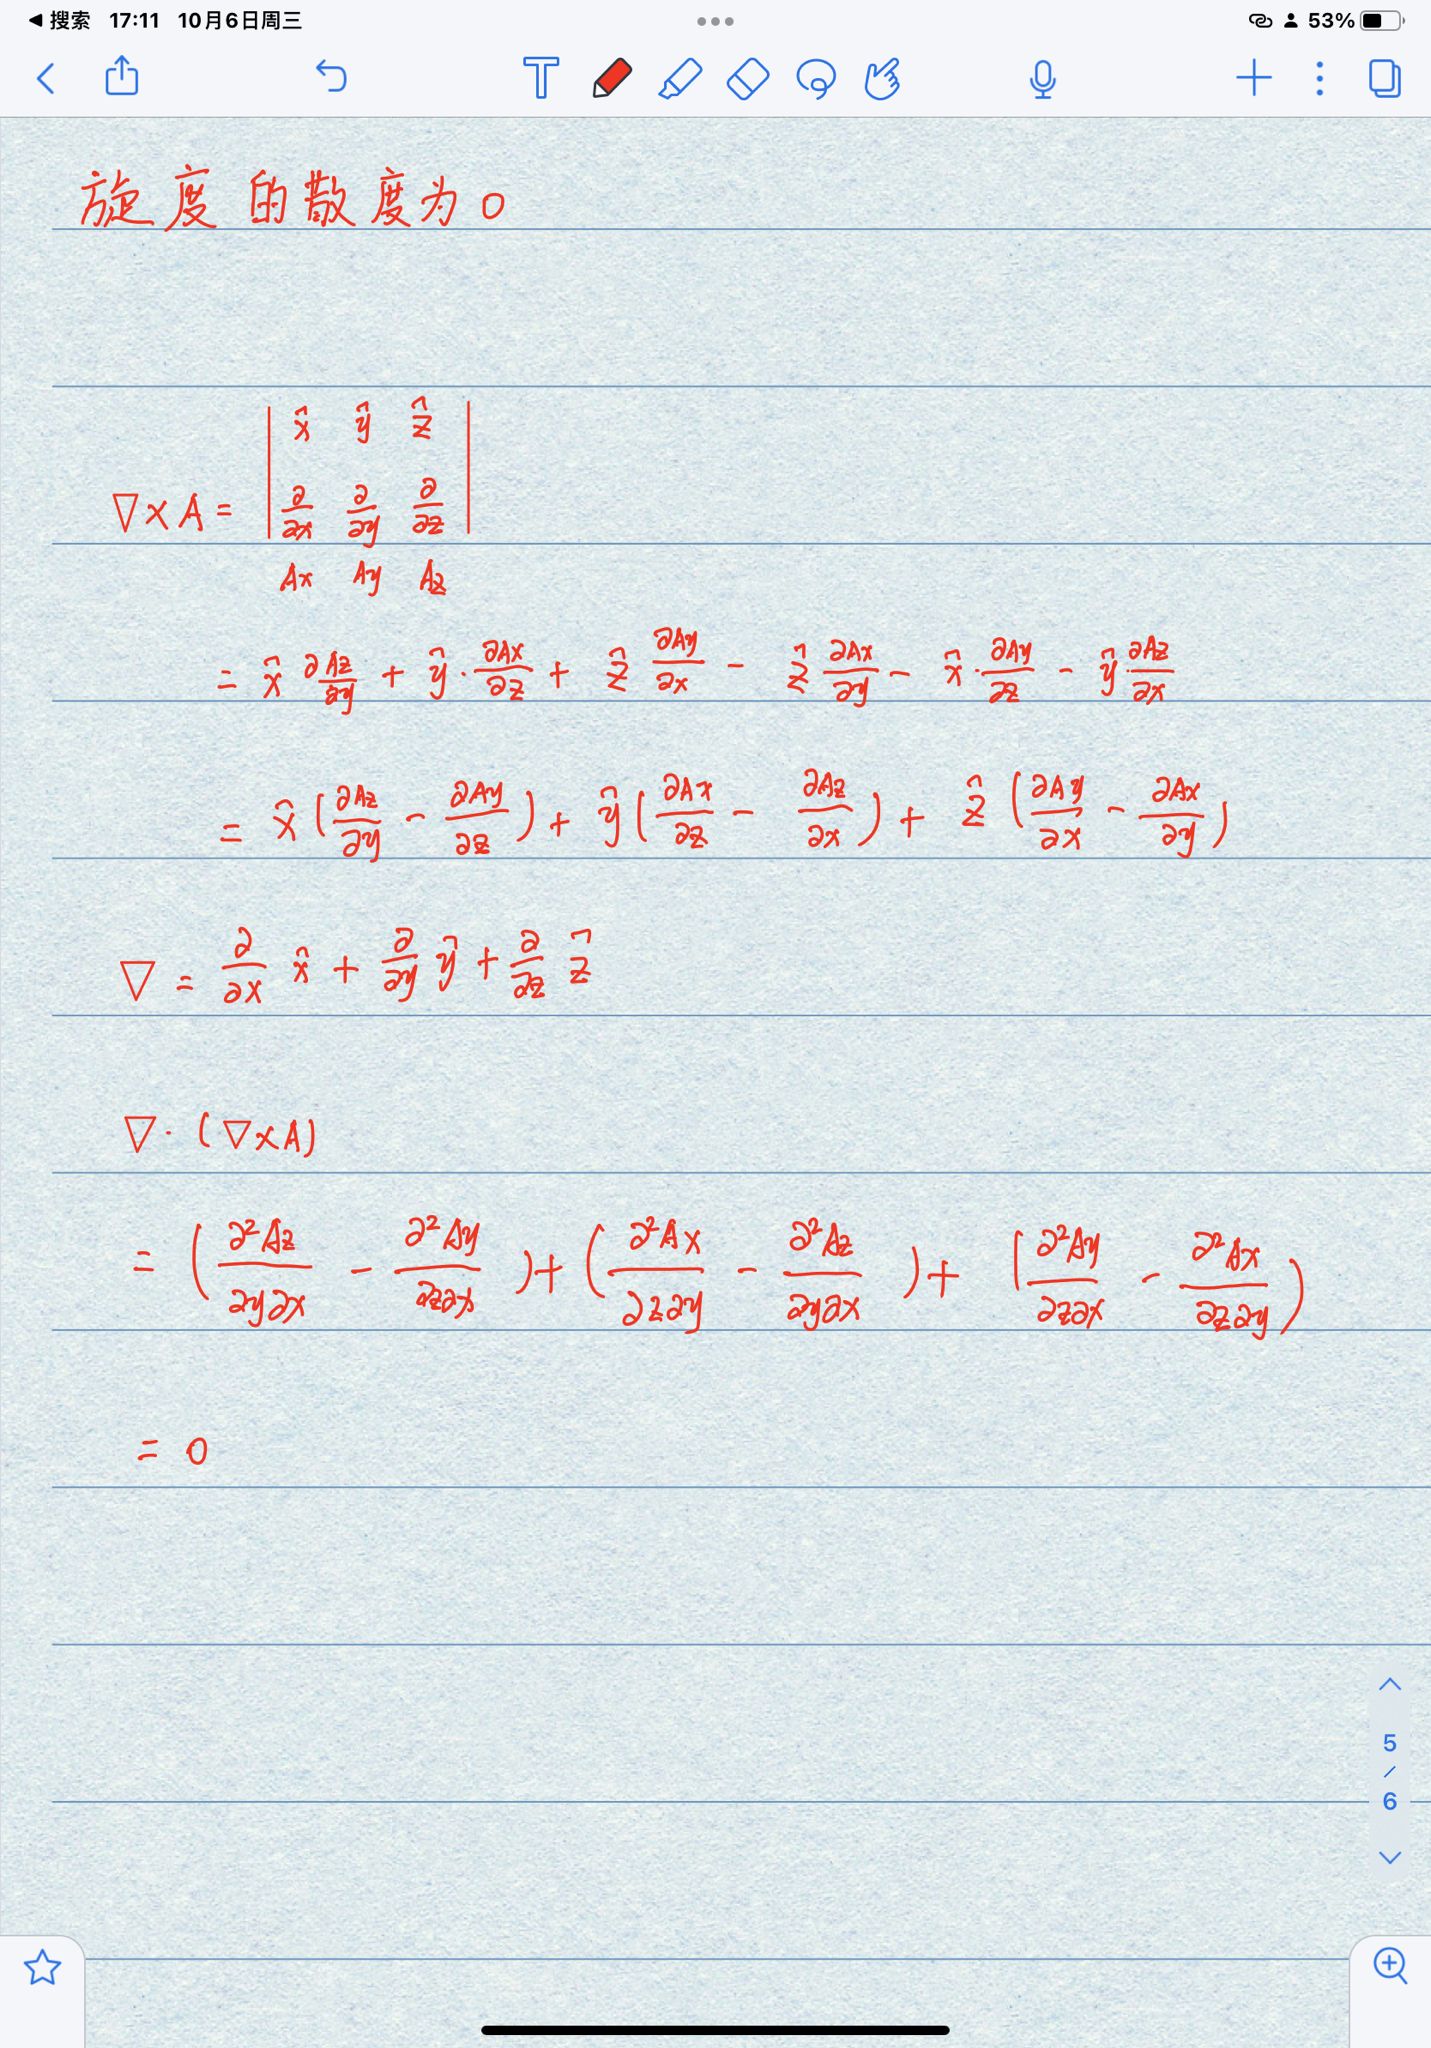 搜索 17:11 10月6日周三 53%
旋度的散度为0
∇×A = | x̂ ŷ ẑ |
| ∂/∂x ∂/∂y ∂/∂z |
Ax Ay Az
= x̂ ∂Az/∂y + ŷ·∂Ax/∂z + ẑ ∂Ay/∂x - ẑ ∂Ax/∂y - x̂·∂Ay/∂z - ŷ·∂Az/∂x
= x̂(∂Az/∂y - ∂Ay/∂z) + ŷ(∂Ax/∂z - ∂Az/∂x) + ẑ(∂Ay/∂x - ∂Ax/∂y)
∇ = ∂/∂x x̂ + ∂/∂y ŷ + ∂/∂z ẑ
∇·(∇×A)
= (∂²Az/∂y∂x - ∂²Ay/∂z∂x) + (∂²Ax/∂z∂y - ∂²Az/∂y∂x) + (∂²Ay/∂z∂x - ∂²Ax/∂z∂y)
= 0
5
/
6